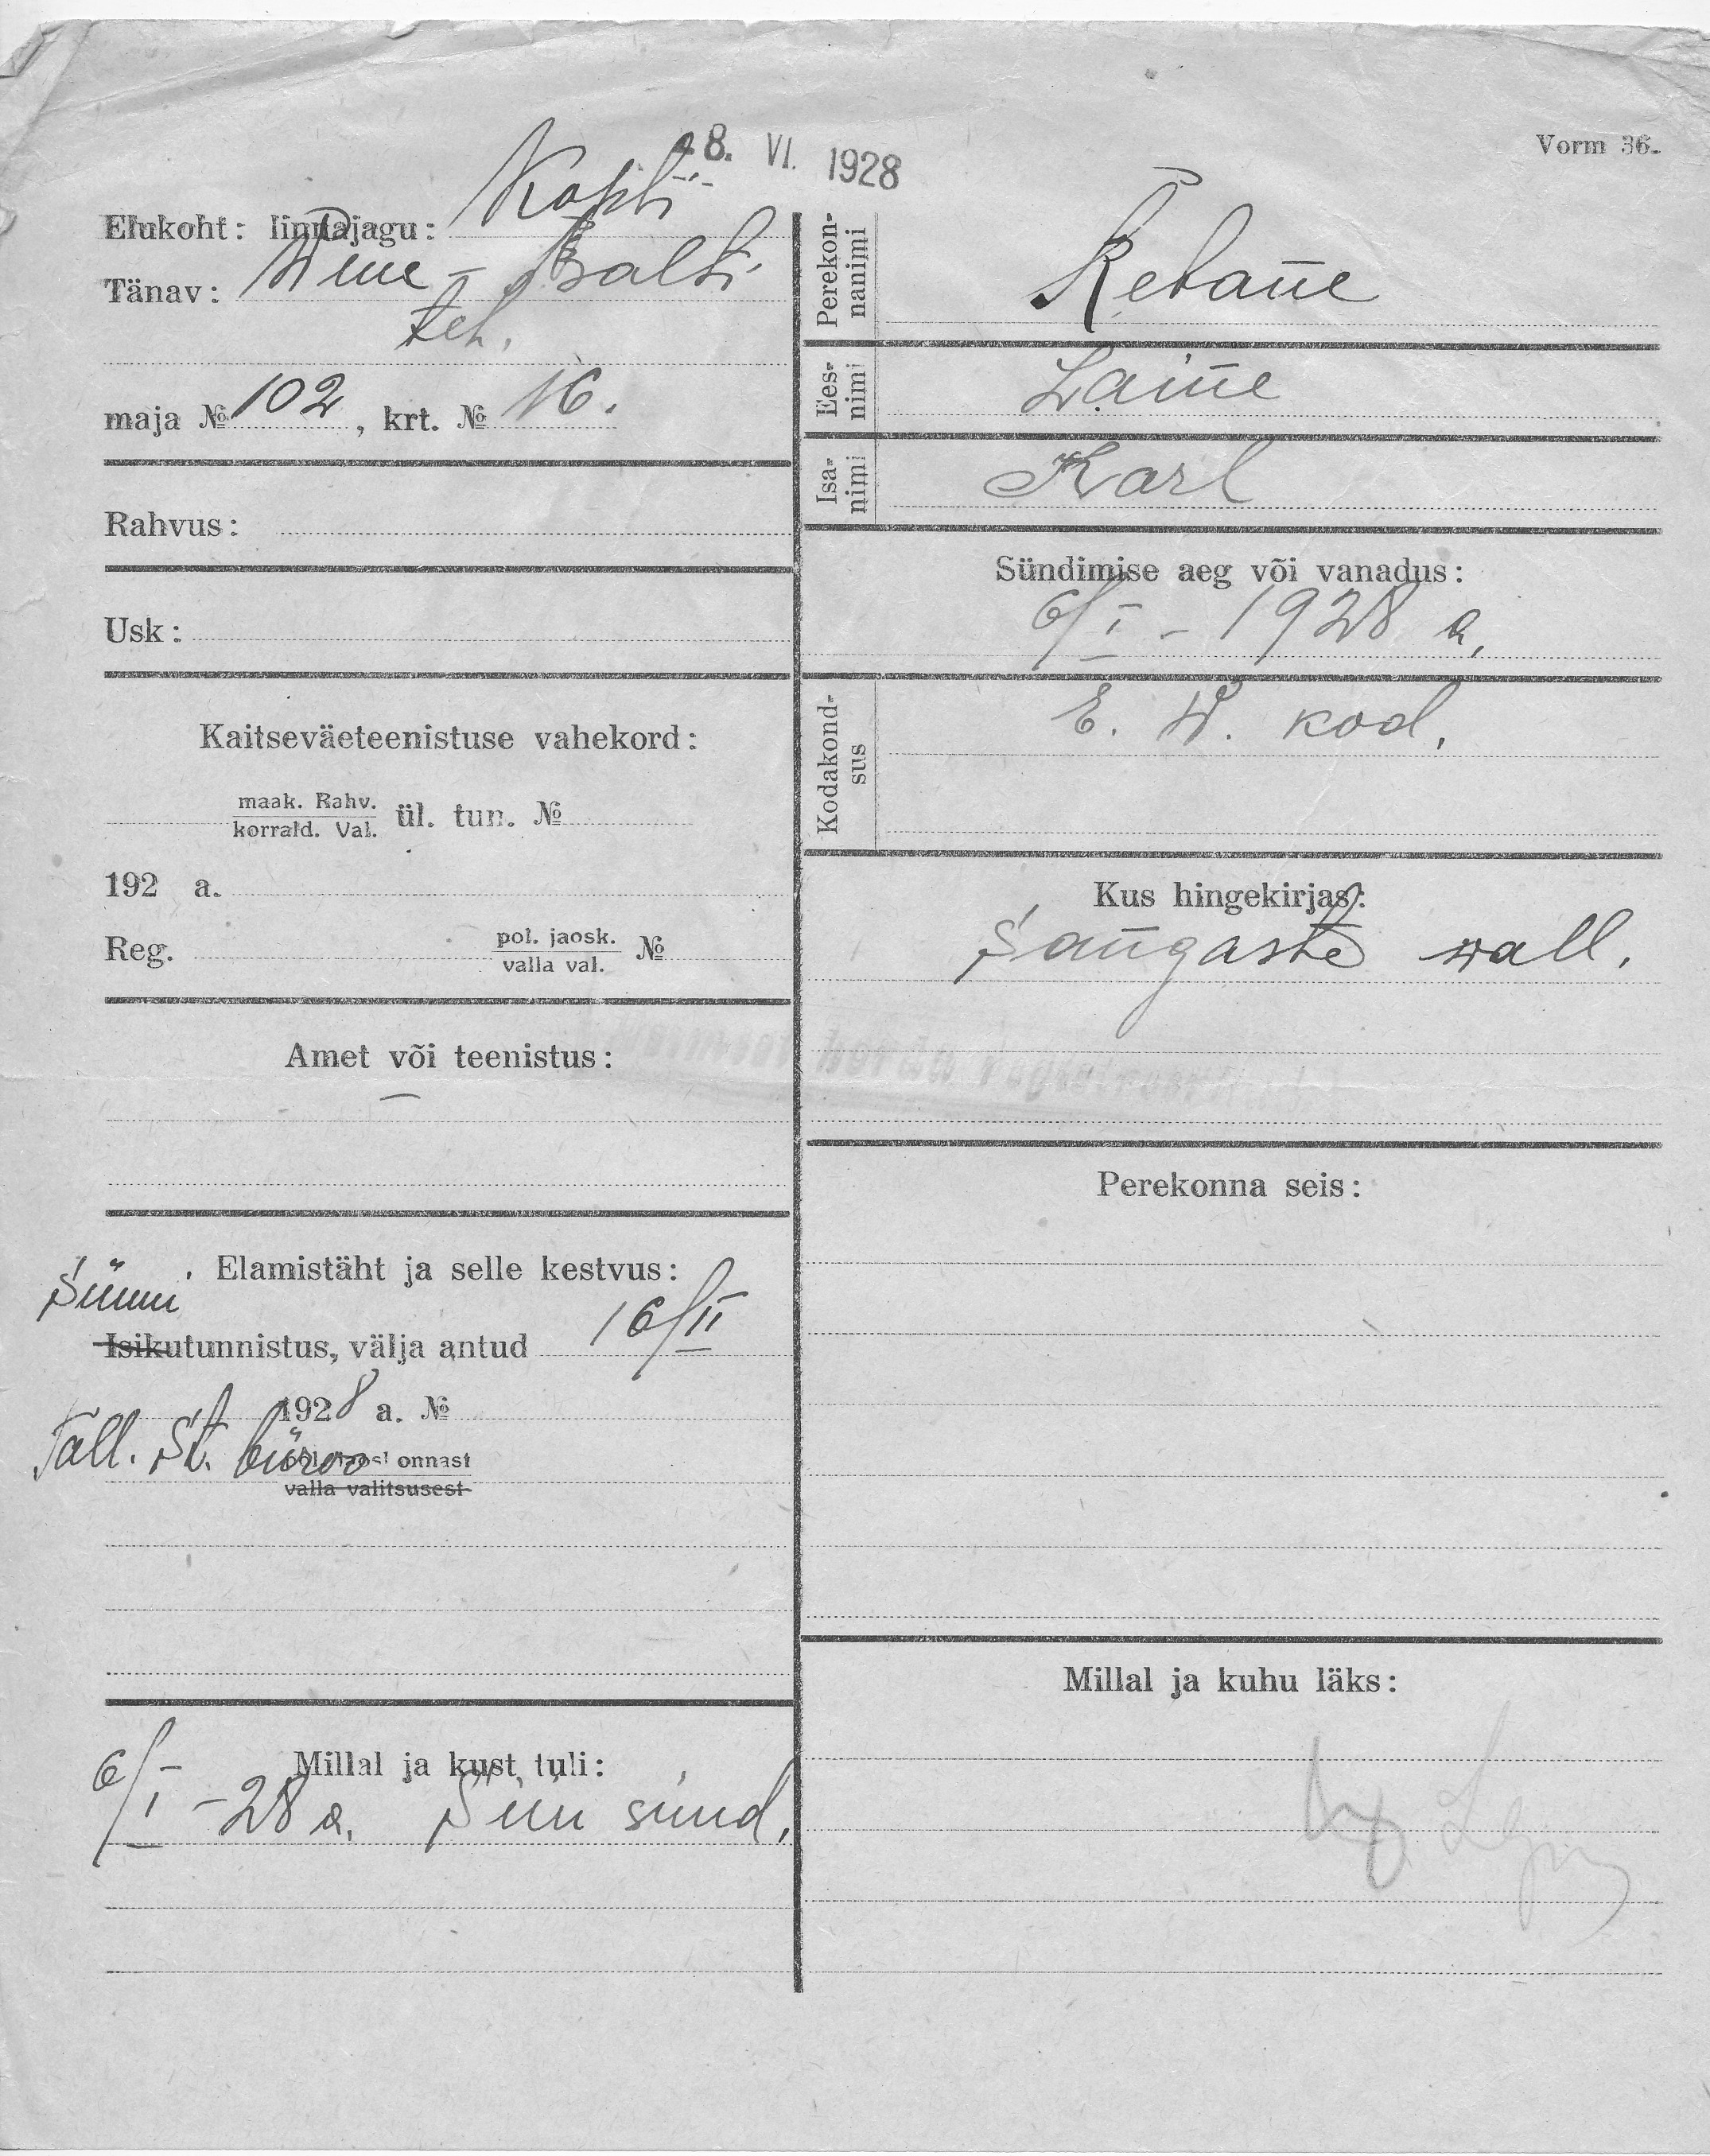 8. VI. 1928
Vorm 36.
Elukoht: linnajagu: Kopli
Tänav: Wene-Balti
teh.
maja № 102, krt. № 16.
Rahvus:
Usk:
Kaitseväeteenistuse vahekord:
maak. Rahv.
korrald. Val. ül. tun. №
192 a.
Reg. pol. jaosk. №
valla val.
Amet või teenistus:
—
Elamistäht ja selle kestvus:
Sünni
Isikutunnistus, välja antud 16/II
1928 a. №
Tall. St. büroo
onnast
valla valitsusest
Millal ja kust tuli:
6/I -28 a. Siin sünd.
Perekon-
nanimi
Rebane
Ees-
nimi
Laine
Isa-
nimi
Karl
Sündimise aeg või vanadus:
6/I - 1928 a.
Kodakond-
sus
E. W. kod.
Kus hingekirjas:
Sangaste wall.
Perekonna seis:
Millal ja kuhu läks: